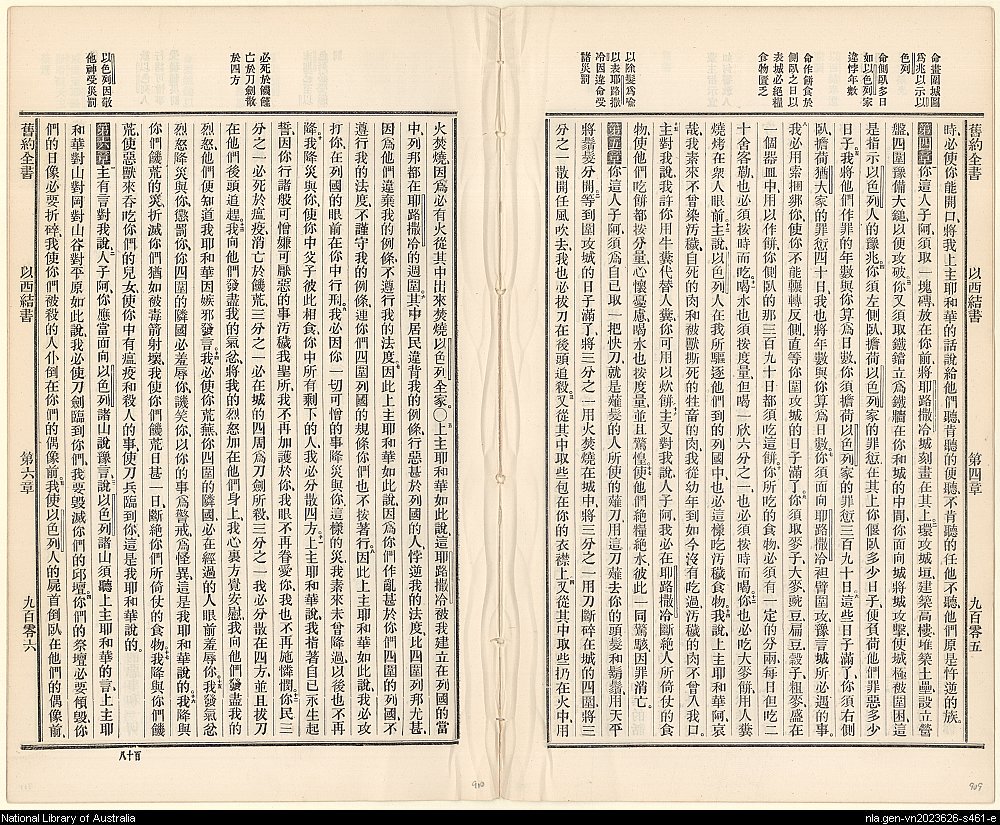 命畫圍城圖
爲兆以示以
色列
命側臥多日
如以色列家
違悖年數
命作餅食於
側臥之日以
表城必絶糧
食物匱乏
以除髮爲喻
以表耶路撒
冷因違命受
諸災罰
舊約全書 以西結書 第四章 九百零五
時、必使你能開口、將我上主耶和華的話說給他們聽、肯聽的便聽、不肯聽的任他不聽、他們原是忤逆的族。
第四章 你這人子阿、須取一塊磚、放在你前、將耶路撒冷城刻畫在其上、環攻城垣、建築高樓、堆築土壘、設立營
盤、四圍豫備大鎚、以便攻破、你又須取鐵鐺、立爲鐵牆、在你和城的中間、你面向城、將城攻擊、使城極被圍困、這
是指示以色列人的豫兆。你須左側臥、擔荷以色列家的罪愆在其上、你偃臥多少日子、便負荷他們罪惡多少
日子、我將他們作罪的年數、與你算爲日數、你須擔荷以色列家的罪愆三百九十日、這些日子滿了、你須右側
臥、擔荷猶大家的罪愆四十日、我也將年數與你算爲日數、你須面向耶路撒冷、袒臂圍攻、豫言城所必遇的事、
我必用索捆綁你、使你不能輾轉反側、直等你圍攻城的日子滿了、你須取麥子、大麥、豌豆、扁豆、穀子、粗麥、盛在
一個器皿中、用以作餅、你側臥的那三百九十日、都須吃這餅、你所吃的食物、必須有一定的分兩、每日但吃二
十舍客勒、也必須按時而吃、喝水也須按度量、但喝一欣六分之一、也必須按時而喝、你也必吃大麥餅、用人糞
燒烤在衆人眼前、主說、以色列人在我所驅逐他們到的列國中、也必這樣吃汚穢食物、我說、上主耶和華阿、哀
哉、我素來不曾染汚穢、自死的肉和被獸撕死的牲畜的肉、我從幼年到如今沒有吃過、汚穢的肉不曾入我口。
主對我說、我許你用牛糞代替人糞、你可用以炊餅、主又對我說、人子阿、我必在耶路撒冷斷絶人所倚仗的食
物、使他們吃餅都按分量、心懷憂慮、喝水也按度量、並且驚惶、使他們絶糧絶水、彼此一同驚駭、因罪消亡。
第五章 你這人子阿、須爲自己取一把快刀、就是薙髮的人所使的薙刀、用這刀薙去你的頭髮和鬍鬚、用天平
將鬚髮分開、等到圍攻城的日子滿了、將三分之一用火焚燒在城中、將三分之一用刀斷碎在城的四圍、將三
分之一散開任風吹去、我也必拔刀在後頭追殺、又從其中取些包在你的衣襟上、又從其中取些扔在火中、用
必死於饑饉
亡於刀劍散
於四方
以色列因敬
他神受災罰
火焚燒、因爲必有火從其中出來、焚燒以色列全家。〇上主耶和華如此說、這耶路撒冷被我建立在列國的當
中、列邦都在耶路撒冷的週圍、其中居民違背我的例條、行惡甚於列國的人、悖逆我的法度、比四圍列邦尤甚、
因爲他們違棄我的例條、不遵行我的法度、因此上主耶和華如此說、因爲你們作亂甚於你們四圍的列國、不
遵行我的法度、不謹守我的例條、連你們四圍列國的規條、你們也不挨著行、因此上主耶和華如此說、我必攻
打你、在列國的眼前、在你中行刑、我必因你一切可憎的事、降災與你、這樣的災、我素來未曾降過、以後也不再
降、我降災與你、使你中父子彼此相食、你中所有剩下的人、我必分散四方。上主耶和華說、我指著自己永生起
誓、因你行諸般可憎嫌可厭惡的事、汚穢我聖所、我不再加護於你、我眼不再眷愛你、我也不再施憐憫、你民三
分之一必死於瘟疫、消亡於饑荒、三分之一必在城的四周爲刀劍所殺、三分之一我必分散在四方、並且拔刀
在他們後頭追趕、我向他們發盡我的氣忿、將我的烈怒加在他們身上、我心裏方覺安慰、我向他們發盡我的
烈怒、他們便知道我耶和華因嫉邪發言、我必使你荒蕪、你四圍的隣國、必在經過的人眼前羞辱你、我發氣忿
烈怒降災與你、懲罰你、你四圍的隣國必羞辱你、譏笑你、以你的事爲警戒、爲怪異、這是我耶和華說的、我降與
你們饑荒的災、折滅你們、猶如被毒箭射壞、我使你們饑荒日甚一日、斷絶你們所倚仗的食物、我降與你們饑
荒、使惡獸來吞吃你們的兒女、使你中有瘟疫和殺人的事、使刀兵臨到你、這是我耶和華說的。
第六章 主有言對我說、人子阿、你應當面向以色列諸山說豫言、說、以色列諸山、須聽上主耶和華的言、上主耶
和華對山、對岡、對山谷、對平原、如此說、我必使刀劍臨到你們、我要毀滅你們的邱壇、你們的祭壇必要傾毀、你
們的日像必要折碎、我使你們被殺的人仆倒在你們的偶像前、我使以色列人的屍首倒臥在他們的偶像前、
舊約全書 以西結書 第六章 九百零六
百十八
910
909
National Library of Australia
nla.gen-vn2023626-s461-e